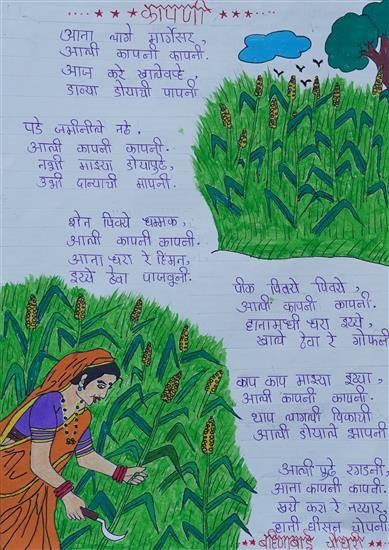 कापणी
आता लागे मार्गेसर,
आली कापनी कापनी.
आज करे खालेवर्‍हे,
डाव्या डोयाची पापनी
पडे जमीनीले तढे,
आली कापनी कापनी.
तशी माझ्या डोयापुढे,
उभी दान्याची मापनी.
शेत पिवये धम्मक,
आली कापनी कापनी.
आता धरा रे हिंमत,
इय्ये ठेवा पाजवुनी.
पीक पिवये पिवये,
आली कापनी कापनी.
हातामधी धरा इय्ये,
खाले ठेवा रे गोफनी
काप काप माझ्या इय्या,
आली कापनी कापनी.
थाप लागली पिकाची
आली डोयाले झापनी
आली पुढे रगडनी,
आता कापनी कापनी.
खये करा रे तय्यार,
हाती घीसन चोपनी
बहिणाबाई चौधरी